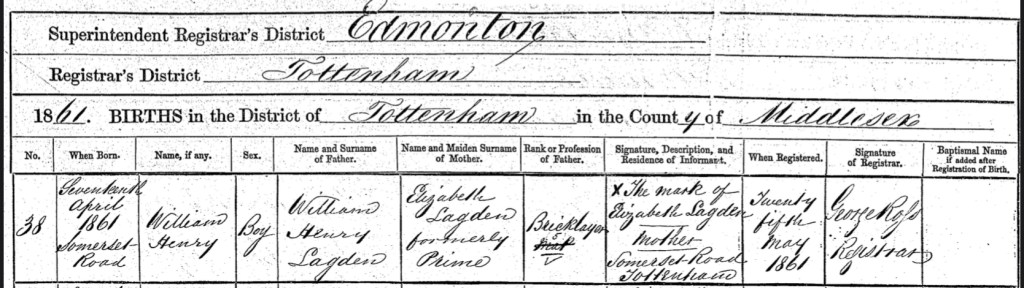 Superintendent Registrar's District Edmonton
Registrar's District Tottenham
1861. BIRTHS in the District of Tottenham in the County of Middlesex
No. When Born. Name, if any. Sex. Name and Surname of Father. Name and Maiden Surname of Mother. Rank or Profession of Father. Signature, Description, and Residence of Informant. When Registered. Signature of Registrar. Baptismal Name if added after Registration of Birth.
38
Seventeenth
April
1861
Somerset
Road
William
Henry
Boy
William
Henry
Lagden
Elizabeth
Lagden
formerly
Prime
Bricklayer
X The mark of
Elizabeth Lagden
Mother
Somerset Road
Tottenham
Twenty
fifth
May
1861
George Ross
Registrar